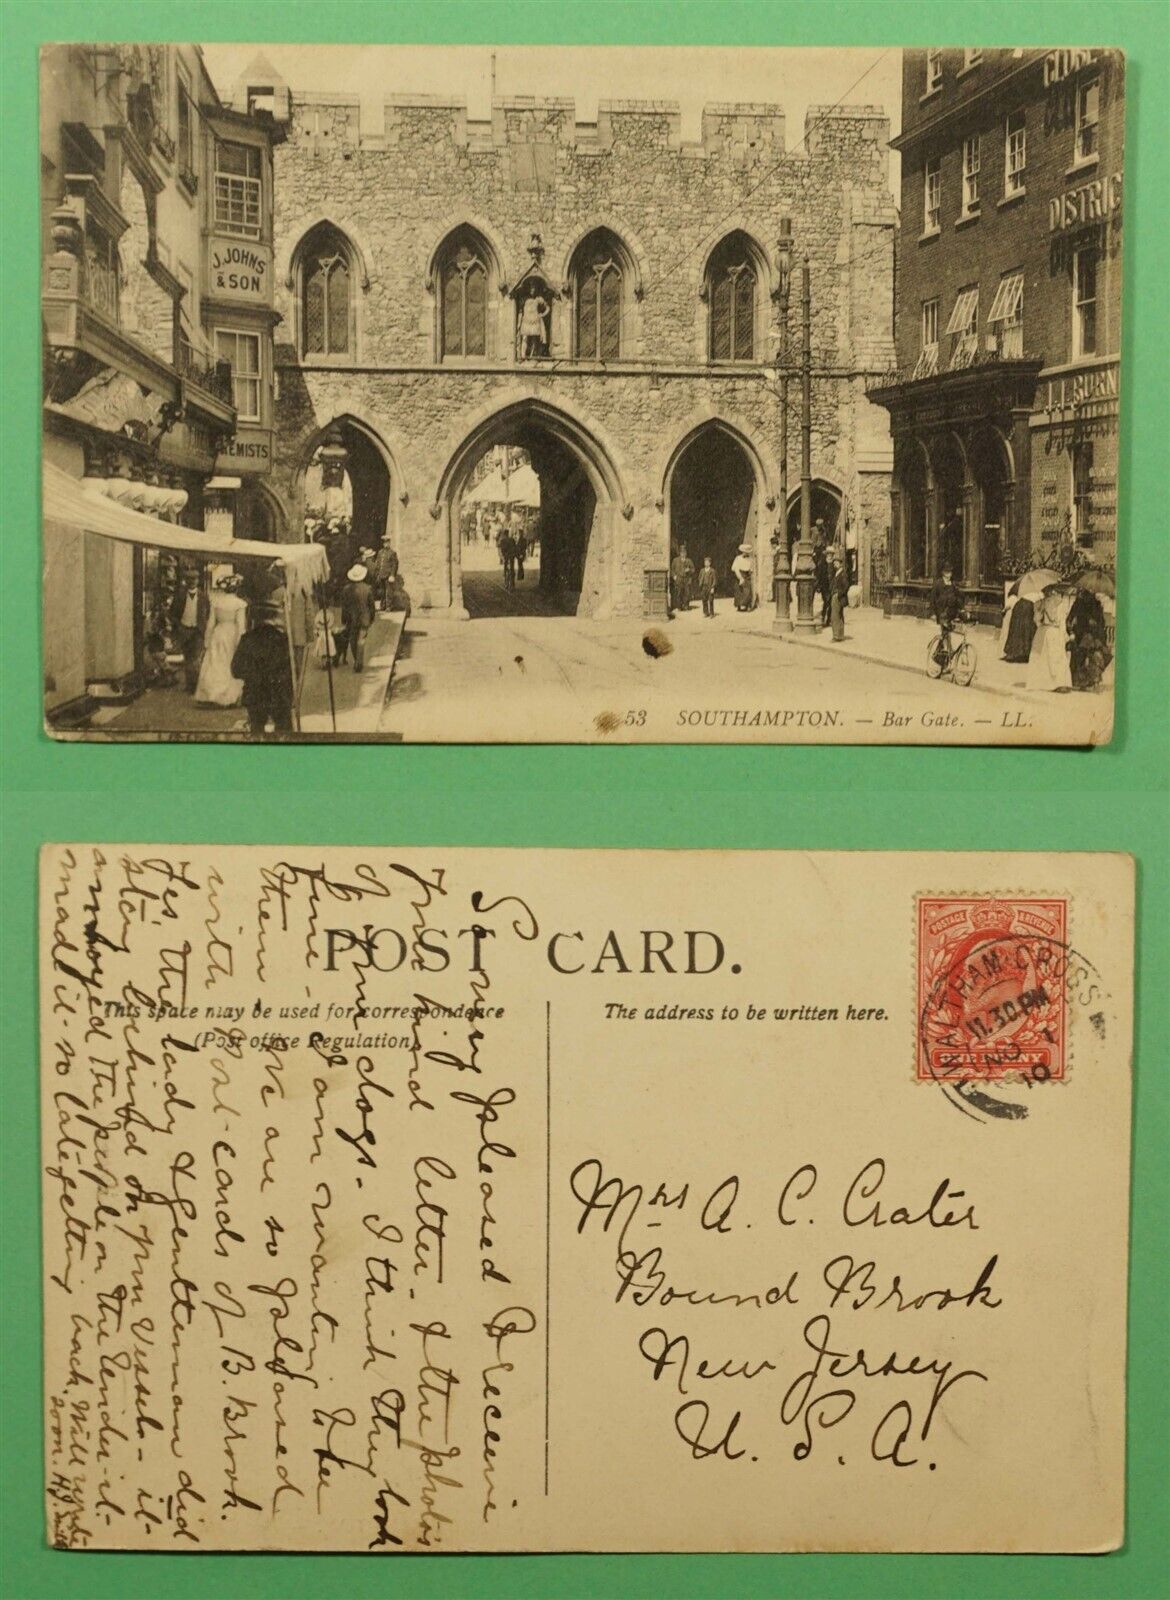 J. JOHNS
& SON
EMISTS
GLOBE
DISTRIC
J. L. BURN
53 SOUTHAMPTON. — Bar Gate. — LL.
POST CARD.
This space may be used for correspondence
(Post office Regulation)
The address to be written here.
POSTAGE & REVENUE
ONE PENNY
WALTHAM CROSS
11.30 PM
NO 1
10
Mrs A. C. Crater
Bound Brook
New Jersey
U. S. A.
So very pleased to receive
your kind letter. & the photos
of your dogs. I think they look
fine - I am wanting to see
them. We are so pleased
with Post-cards of B. Brook.
Yes, the lady & gentleman did
stay behind on your Vessel - it
annoyed the people on the tender - it
made it so late getting back. Will write
soon. H.J.